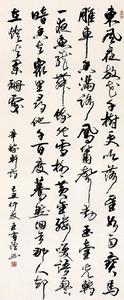 東風夜放花千樹更吹落星如雨寶馬
雕車香滿路鳳簫聲動玉壺光轉
一夜魚龍舞蛾兒雪柳黃金縷笑語盈盈
暗香去眾里尋他千百度驀然回首那人卻
在燈火闌珊處
辛稼軒詞